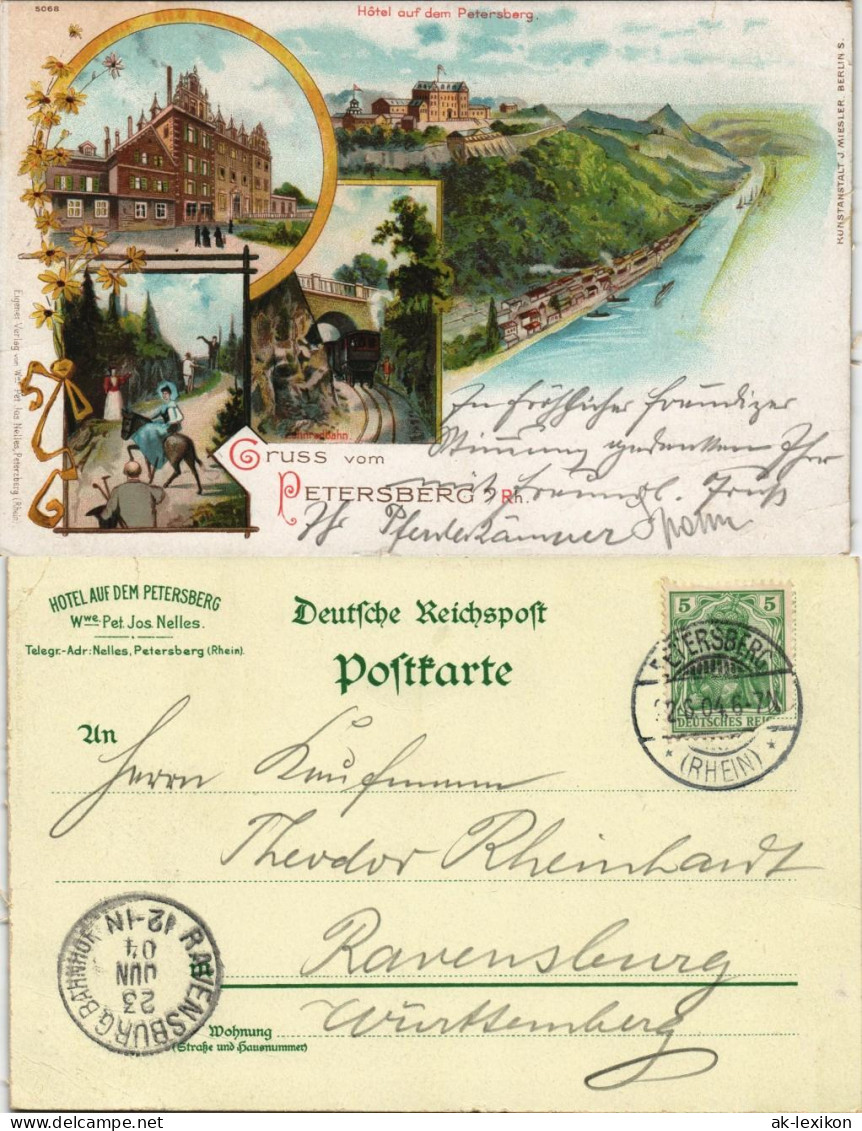 5068
Hôtel auf dem Petersberg.
KUNSTANSTALT J. MIESLER, BERLIN S.
Eigener Verlag von Wwe Pet. Jos. Nelles, Petersberg (Rhein).
Zahnradbahn.
Gruss vom
PETERSBERG a/Rh.
In fröhlicher freudiger
Stimmung gedenken Ihr
mit freundl. Gruß
Ihr
HOTEL AUF DEM PETERSBERG
Wwe. Pet. Jos. Nelles.
Telegr.-Adr: Nelles, Petersberg (Rhein).
Deutsche Reichspost
Postkarte
5 5
DEUTSCHES REICH
PETERSBERG
22.6.04.6-7N.
* (RHEIN) *
An
Herrn Kaufmann
Theodor Rheinhardt
Ravensburg
Württemberg
RAVENSBURG BAHNHOF
23
JUN
04
12-1N
Wohnung
(Straße und Hausnummer)
ak-lexikon